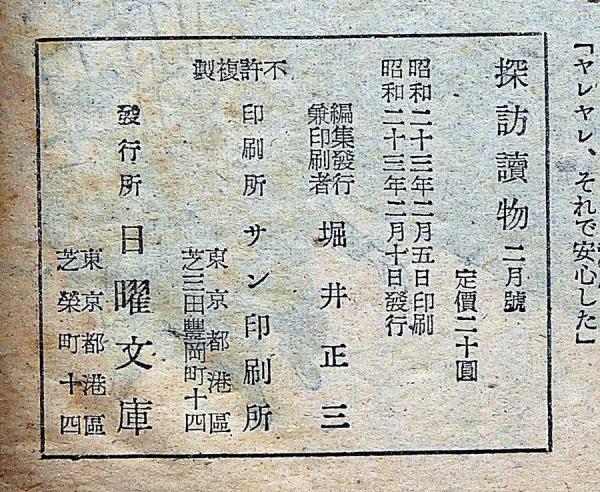 「ヤレヤレ、それで安心した」
探訪讀物 二月號
定價二十圓
昭和二十三年二月五日印刷
昭和二十三年二月十日發行
編集發行
兼印刷者 堀井正三
不許複製
印刷所 サン印刷所
東京都港區
芝三田豐岡町十四
發行所 日曜文庫
東京都港區
芝榮町十四